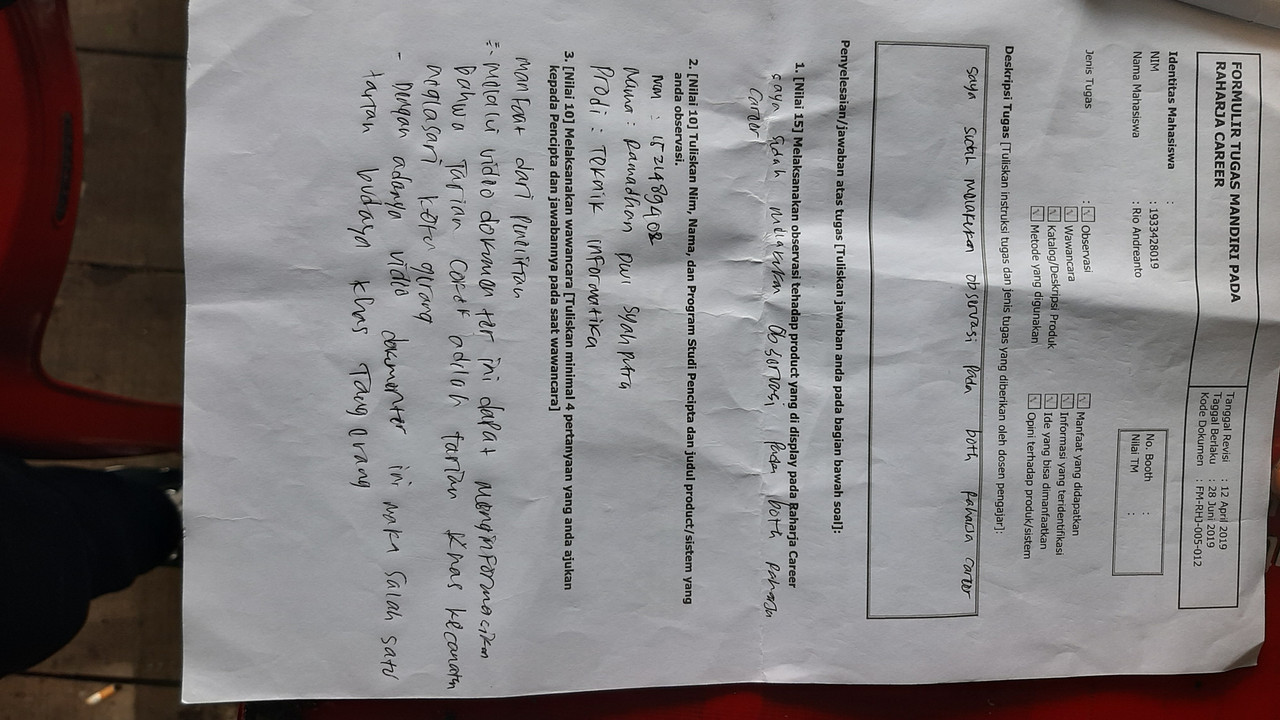 FORMULIR TUGAS MANDIRI PADA
RAHARJA CAREER
Tanggal Revisi : 12 April 2019
Taggal Berlaku : 28 Juni 2019
Kode Dokumen : FM-RHJ-005-012
Identitas Mahasiswa :
NIM : 1933428019
Nama Mahasiswa : Rio Andreanto
No. Booth :
Nilai TM :
Jenis Tugas : Observasi
Wawancara
Katalog/Deskripsi Produk
Metode yang digunakan
Manfaat yang didapatkan
Informasi yang teridentifikasi
Ide yang bisa dimanfaatkan
Opini terhadap produk/sistem
Deskripsi Tugas [Tuliskan instruksi tugas dan jenis tugas yang diberikan oleh dosen pengajar]:
saya sudah melakukan observasi pada both raharja career
Penyelesaian/jawaban atas tugas [Tuliskan jawaban anda pada bagian bawah soal]:
1. [Nilai 15] Melaksanakan observasi tehadap product yang di display pada Raharja Career
saya sudah melakukan observasi pada both raharja
career
2. [Nilai 10] Tuliskan Nim, Nama, dan Program Studi Pencipta dan judul product/sistem yang
anda observasi.
Nim :
Nama : ramadhan putu syahputra
Prodi : Teknik informatika
3. [Nilai 10] Melaksanakan wawancara [Tuliskan minimal 4 pertanyaan yang anda ajukan
kepada Pencipta dan jawabannya pada saat wawancara]
manfaat dari penelitian
- melalui video dokumenter ini dapat menginformasikan
bahwa Tarian cokek adalah tarian khas kecamatan
neglasari kota
- Dengan adanya video dokumenter ini maka salah satu
tarian budaya khas Tangerang